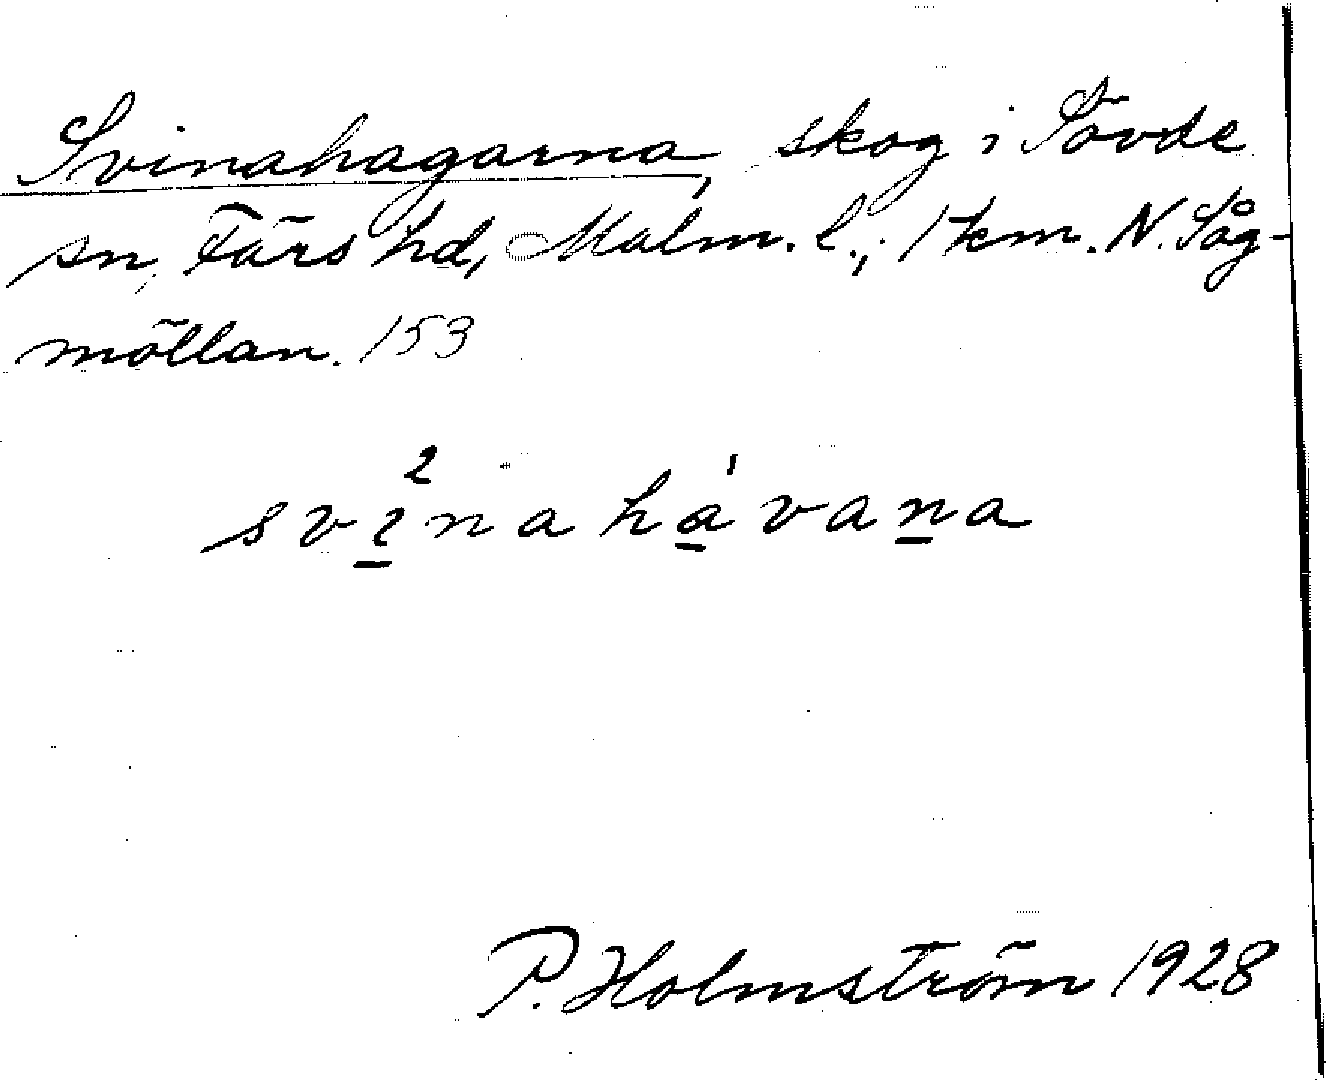 Svinahagarna, skog i Sövde
sn, Färs hd, Malm. l.; 1 km. N. Såg-
möllan. 153
svi̲²naha̲̍van̲a
P. Holmström 1928